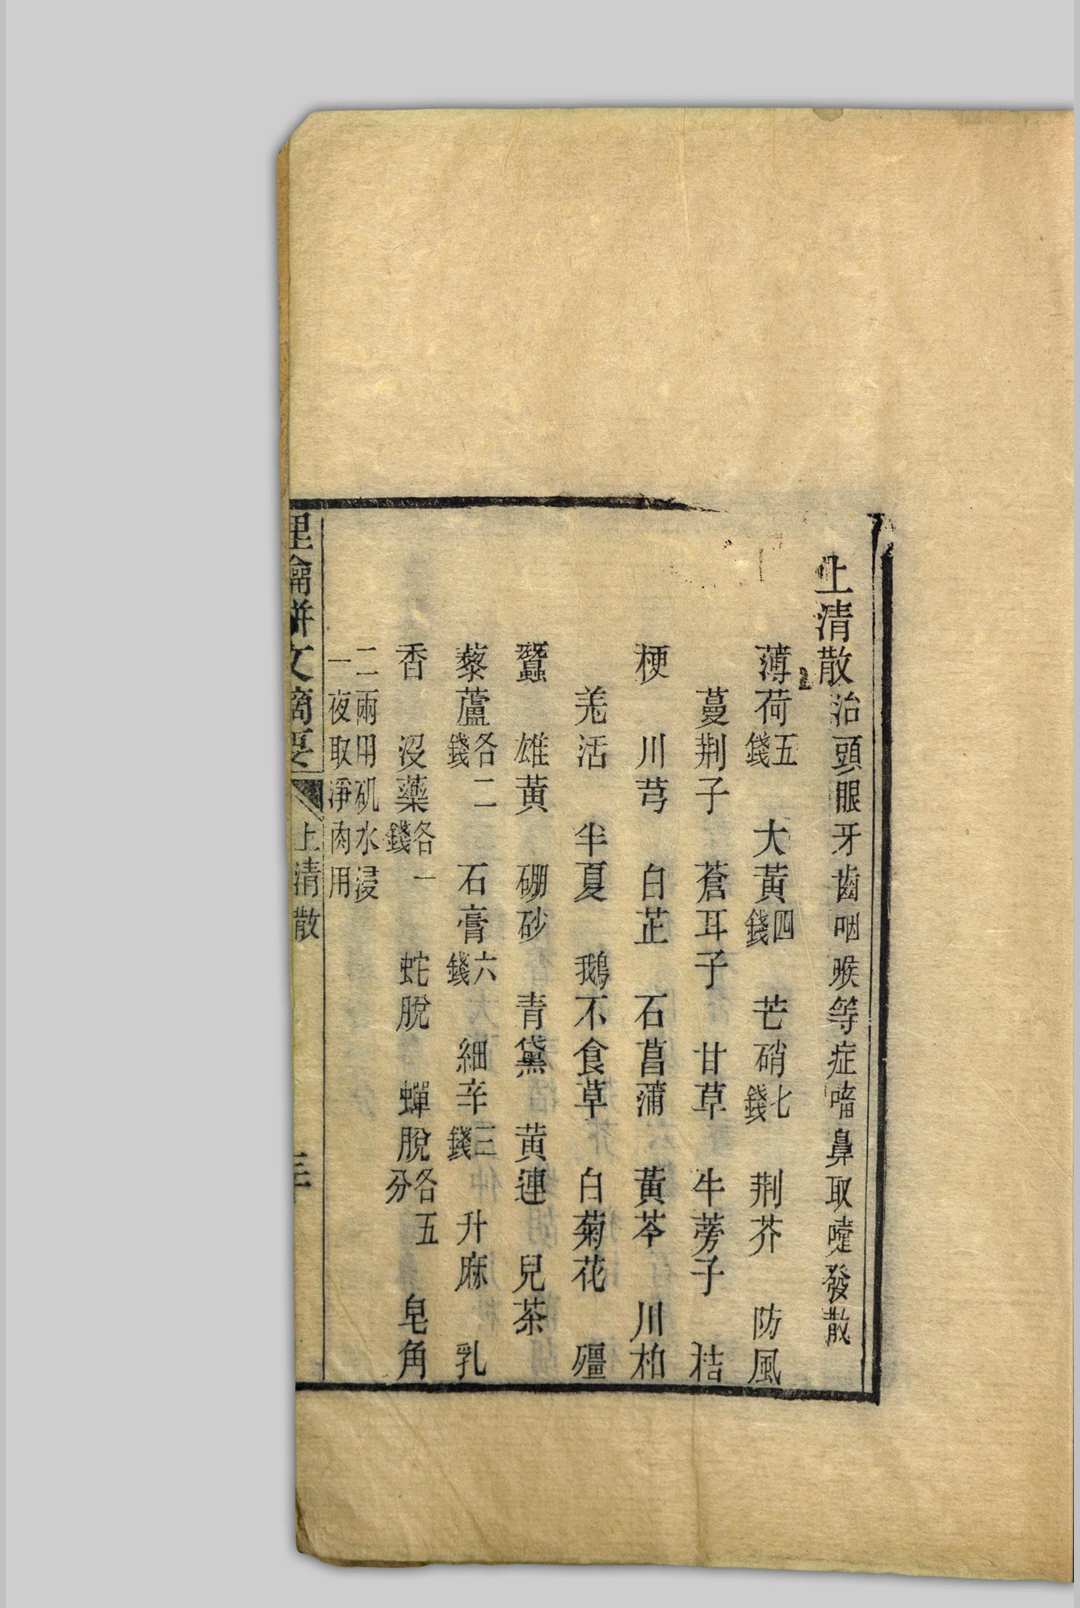 上清散治頭眼牙齒咽喉等症嗜鼻取嚏發散
薄荷五錢 大黃四錢 芒硝七錢 荆芥 防風
蔓荆子 蒼耳子 甘草 牛蒡子 桔
梗 川芎 白芷 石菖蒲 黃芩 川柏
羌活 半夏 鵝不食草 白菊花 殭
蠶 雄黃 硼砂 青黛 黃連 兒茶
藜蘆各二錢 石膏六錢 細辛三錢 升麻 乳
香 沒藥各一錢 蛇脫 蟬脫各五分 皂角
二兩用矾水浸一夜取淨肉用
理瀹駢文摘要 上清散